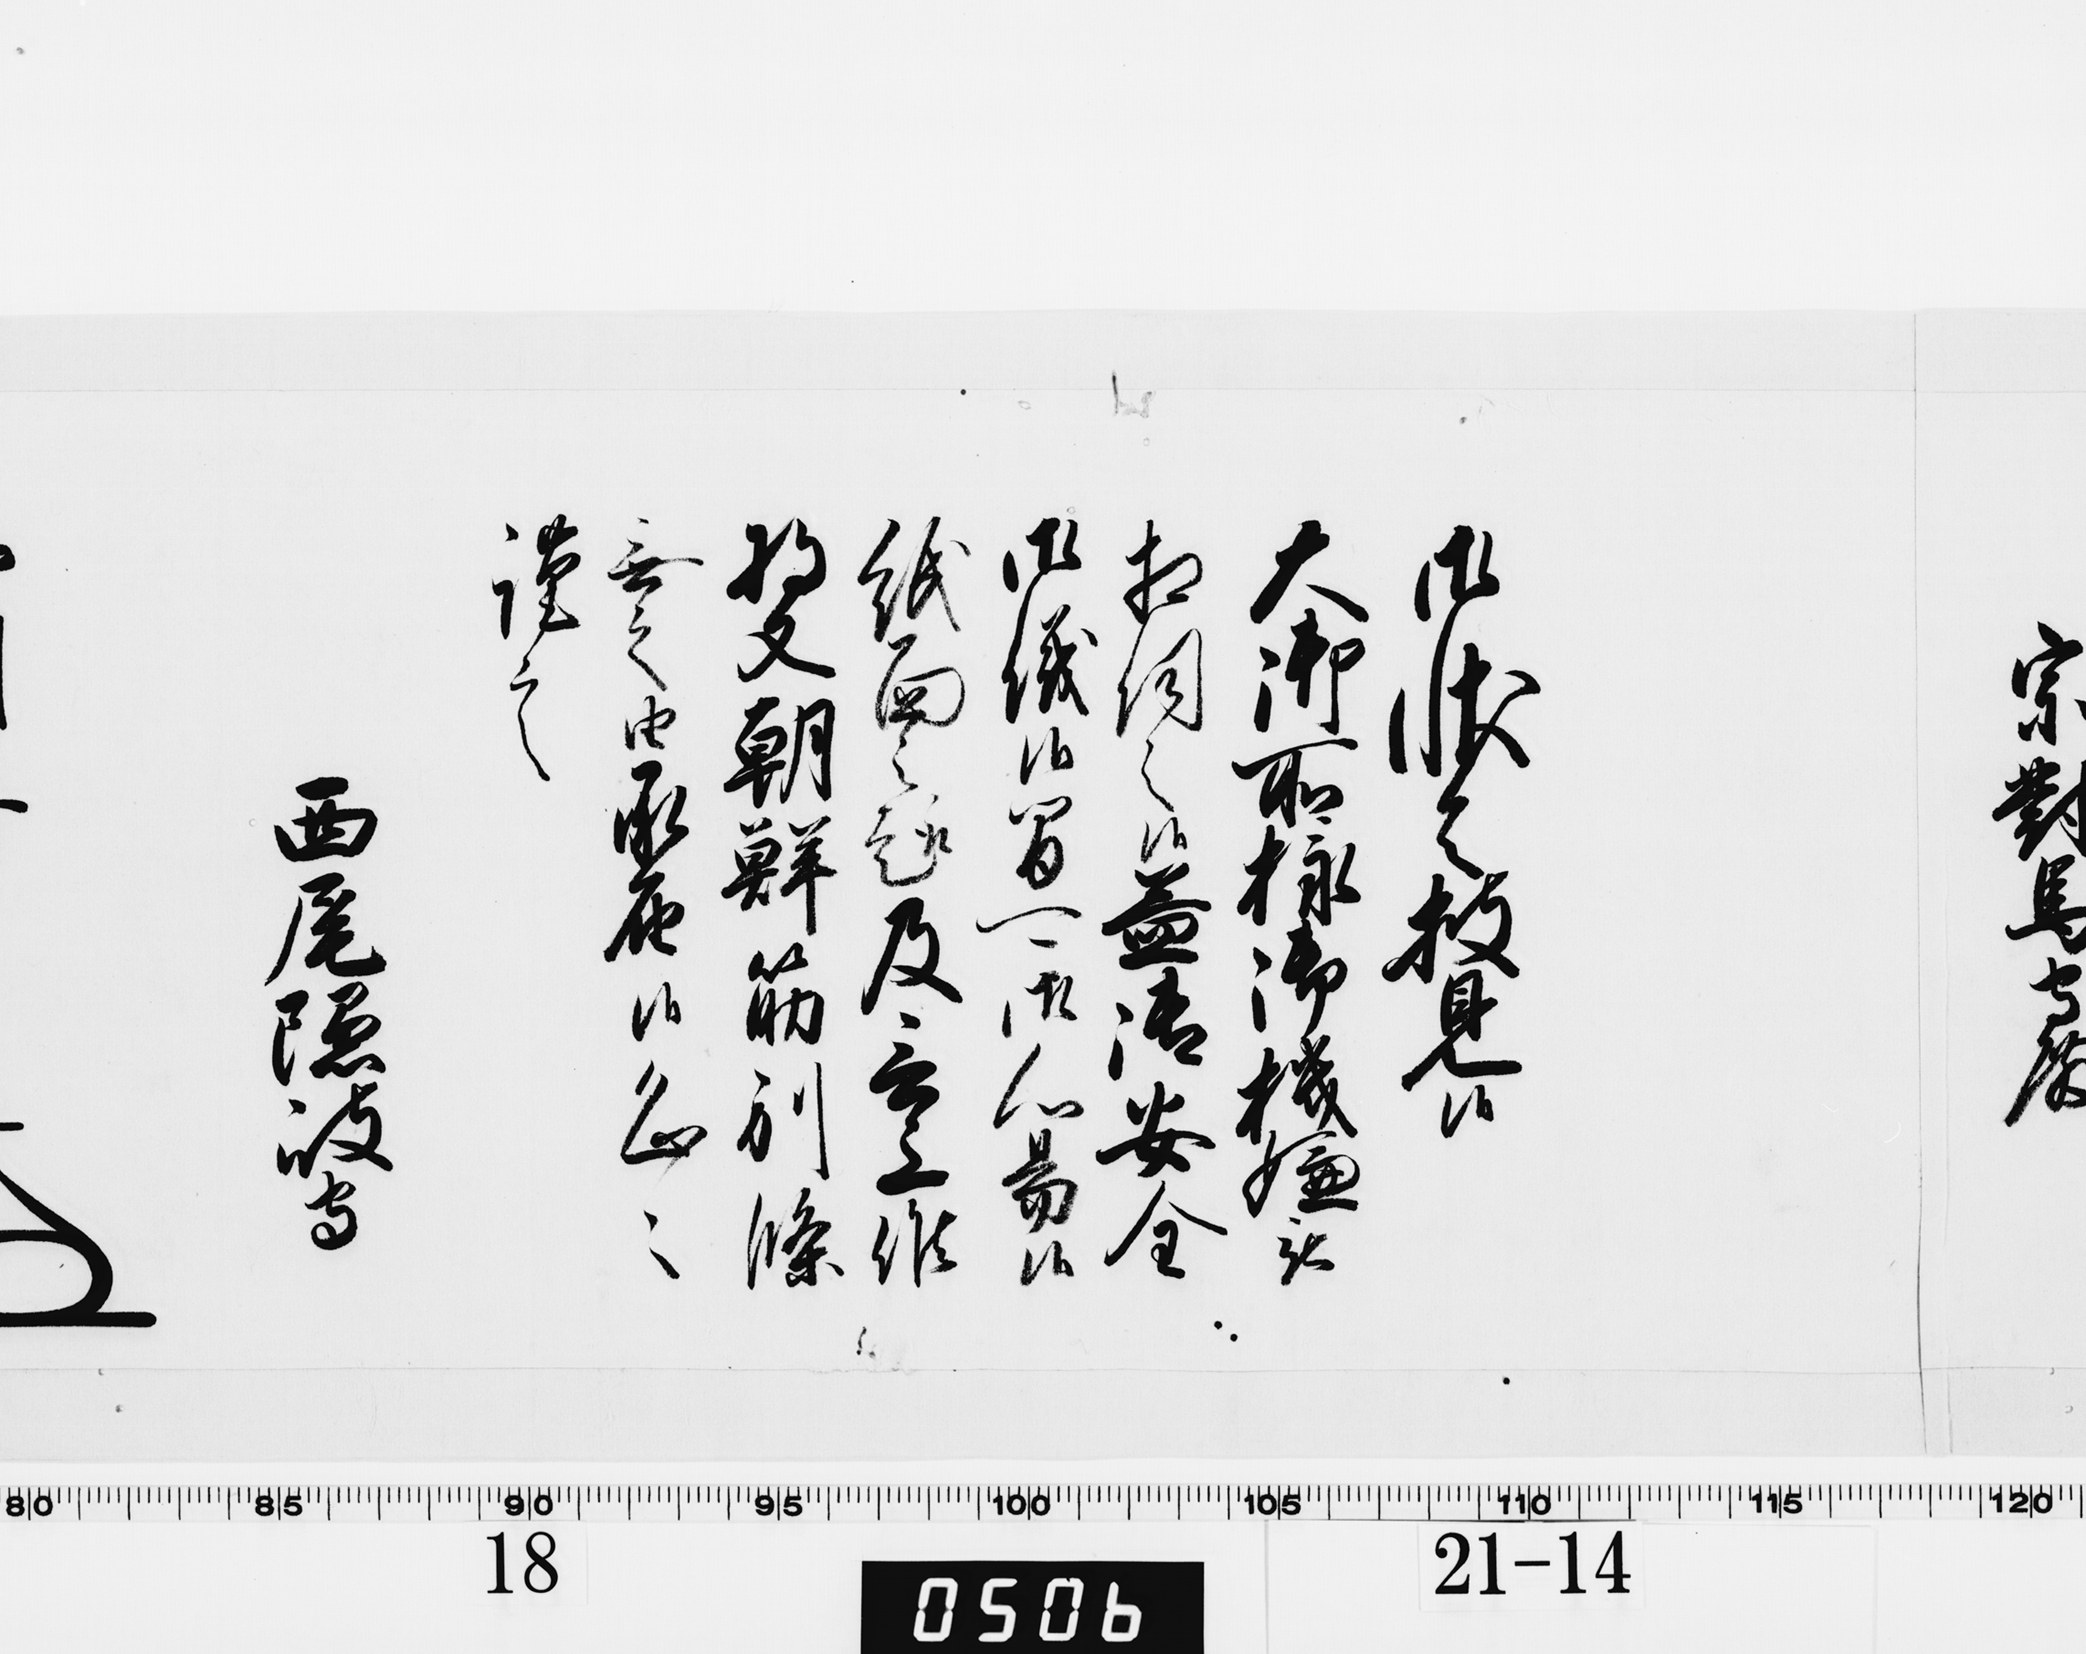 宗對馬守殿
御状令披見候
大御所様御機嫌被
相伺之候益御安全
御儀候間可御心易候
紙面之趣及言上候
将又朝鮮筋別條
無之由承届候恐々
謹言
西尾隠岐守
80 85 90 95 100 105 110 115 120
18
21-14
0506